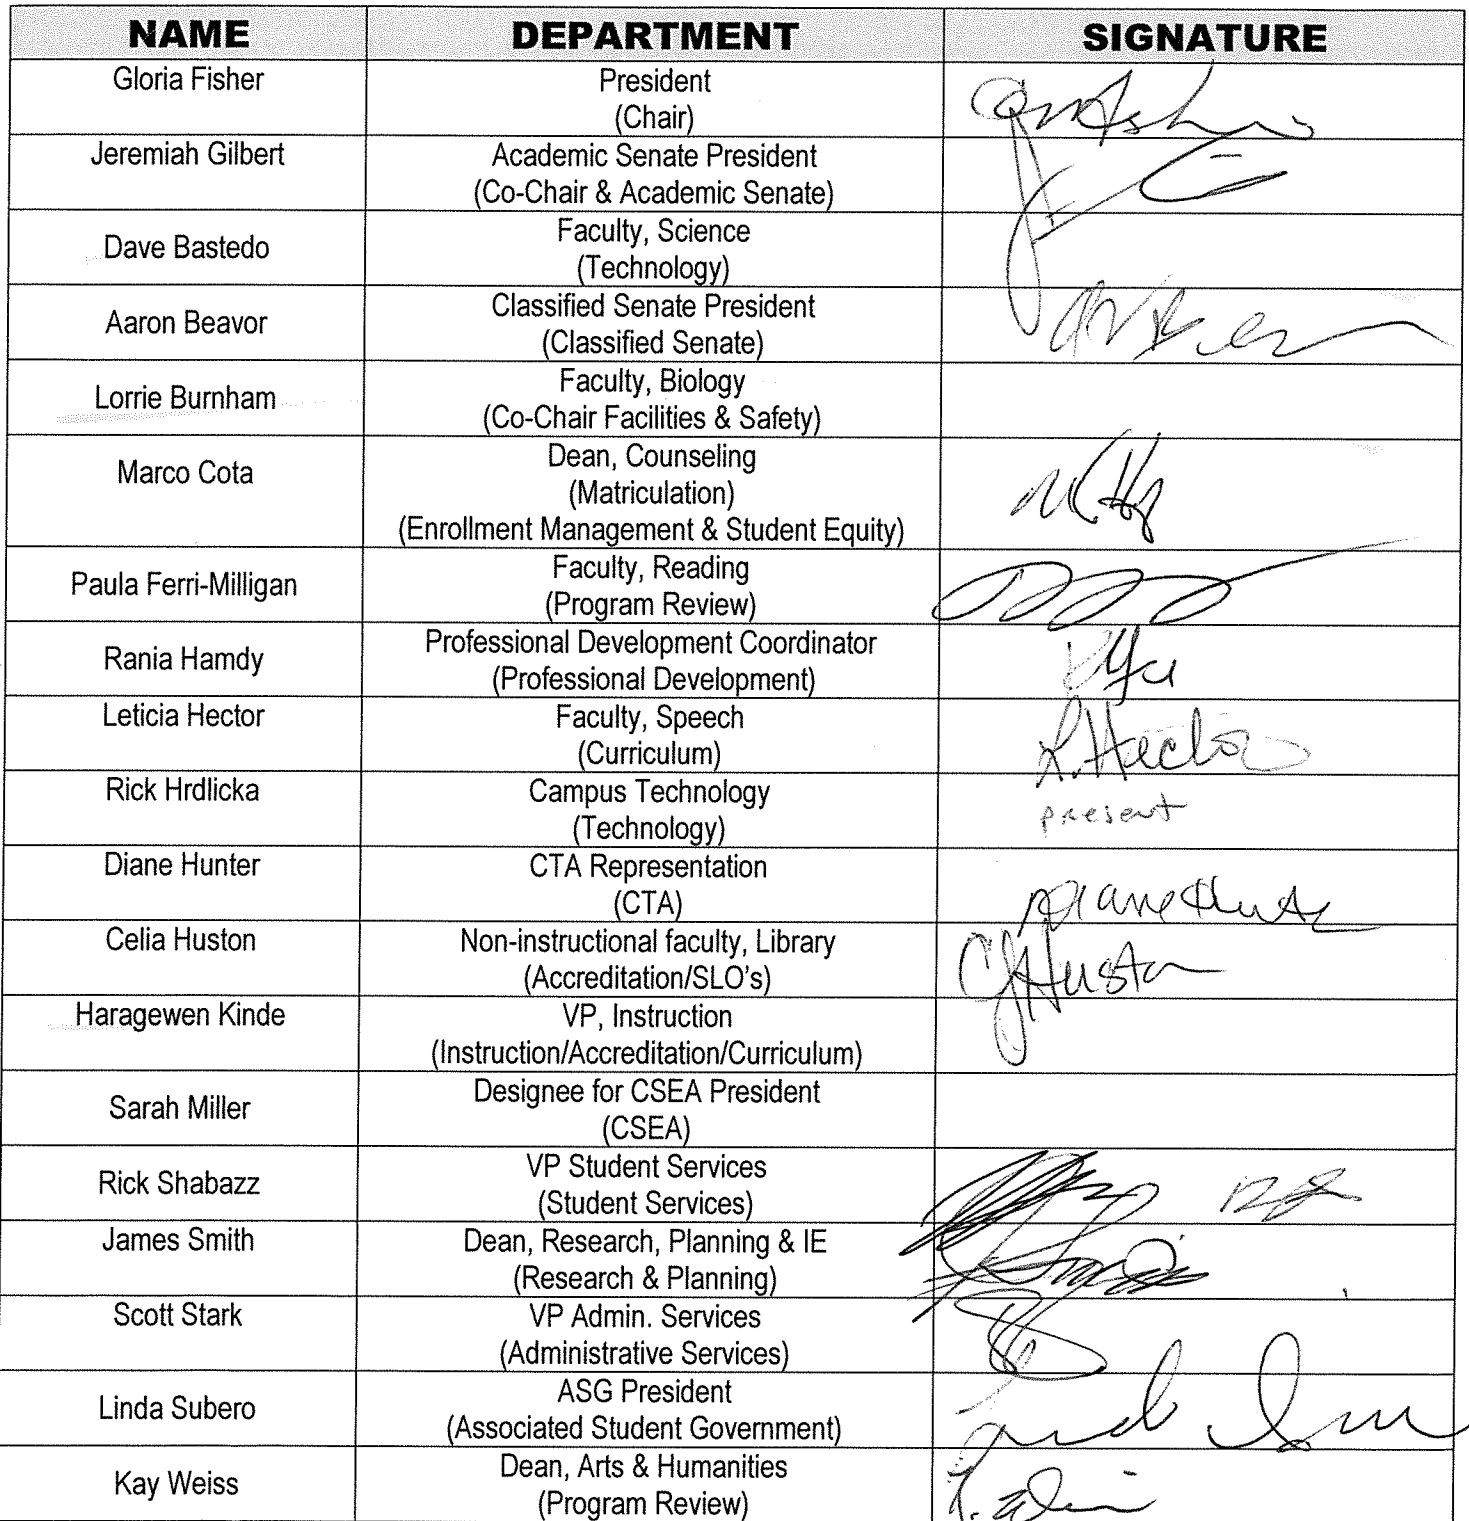 NAME DEPARTMENT SIGNATURE
Gloria Fisher President
(Chair)
Jeremiah Gilbert Academic Senate President
(Co-Chair & Academic Senate)
Dave Bastedo Faculty, Science
(Technology)
Aaron Beavor Classified Senate President
(Classified Senate)
Lorrie Burnham Faculty, Biology
(Co-Chair Facilities & Safety)
Marco Cota Dean, Counseling
(Matriculation)
(Enrollment Management & Student Equity)
Paula Ferri-Milligan Faculty, Reading
(Program Review)
Rania Hamdy Professional Development Coordinator
(Professional Development)
Leticia Hector Faculty, Speech L. Hector
(Curriculum)
Rick Hrdlicka Campus Technology present
(Technology)
Diane Hunter CTA Representation
(CTA) Diane Hunter
Celia Huston Non-instructional faculty, Library CJ Huston
(Accreditation/SLO's)
Haragewen Kinde VP, Instruction
(Instruction/Accreditation/Curriculum)
Sarah Miller Designee for CSEA President
(CSEA)
Rick Shabazz VP Student Services
(Student Services)
James Smith Dean, Research, Planning & IE
(Research & Planning)
Scott Stark VP Admin. Services
(Administrative Services)
Linda Subero ASG President
(Associated Student Government)
Kay Weiss Dean, Arts & Humanities
(Program Review)